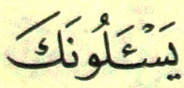 يَسْـَٔلُونَكَ